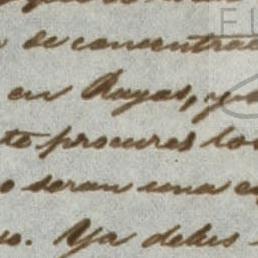 se concentra
en Rayas, y
te procures lo
o seran una e
o. Ya debes